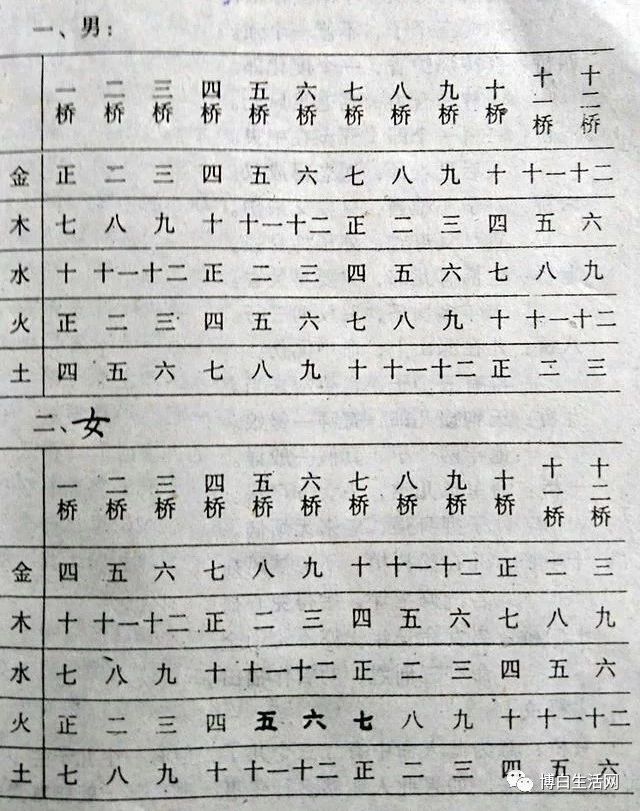 一、男：
一桥 二桥 三桥 四桥 五桥 六桥 七桥 八桥 九桥 十桥 十一桥 十二桥
金 正 二 三 四 五 六 七 八 九 十 十一 十二
木 七 八 九 十 十一 十二 正 二 三 四 五 六
水 十 十一 十二 正 二 三 四 五 六 七 八 九
火 正 二 三 四 五 六 七 八 九 十 十一 十二
土 四 五 六 七 八 九 十 十一 十二 正 二 三
二、女
一桥 二桥 三桥 四桥 五桥 六桥 七桥 八桥 九桥 十桥 十一桥 十二桥
金 四 五 六 七 八 九 十 十一 十二 正 二 三
木 十 十一 十二 正 二 三 四 五 六 七 八 九
水 七 八 九 十 十一 十二 正 二 三 四 五 六
火 正 二 三 四 五 六 七 八 九 十 十一 十二
土 七 八 九 十 十一 十二 正 二 三 四 五 六
博白生活网